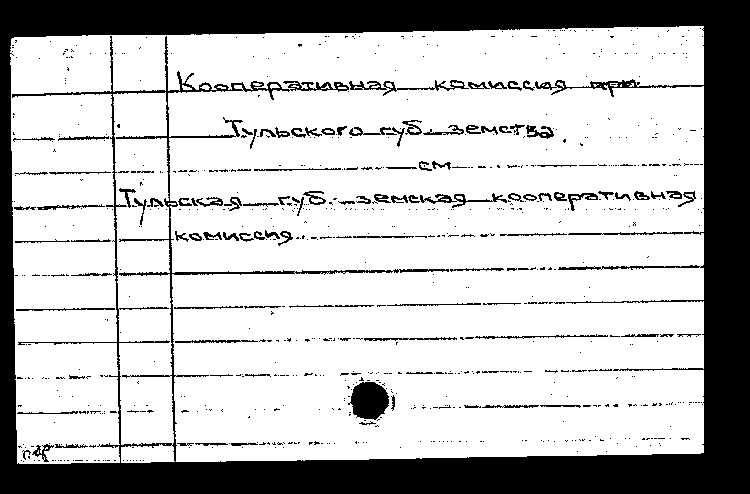 Кооперативная комиссия при
Тульского губ. земства.
см
Тульская губ. земская кооперативная
комиссия.